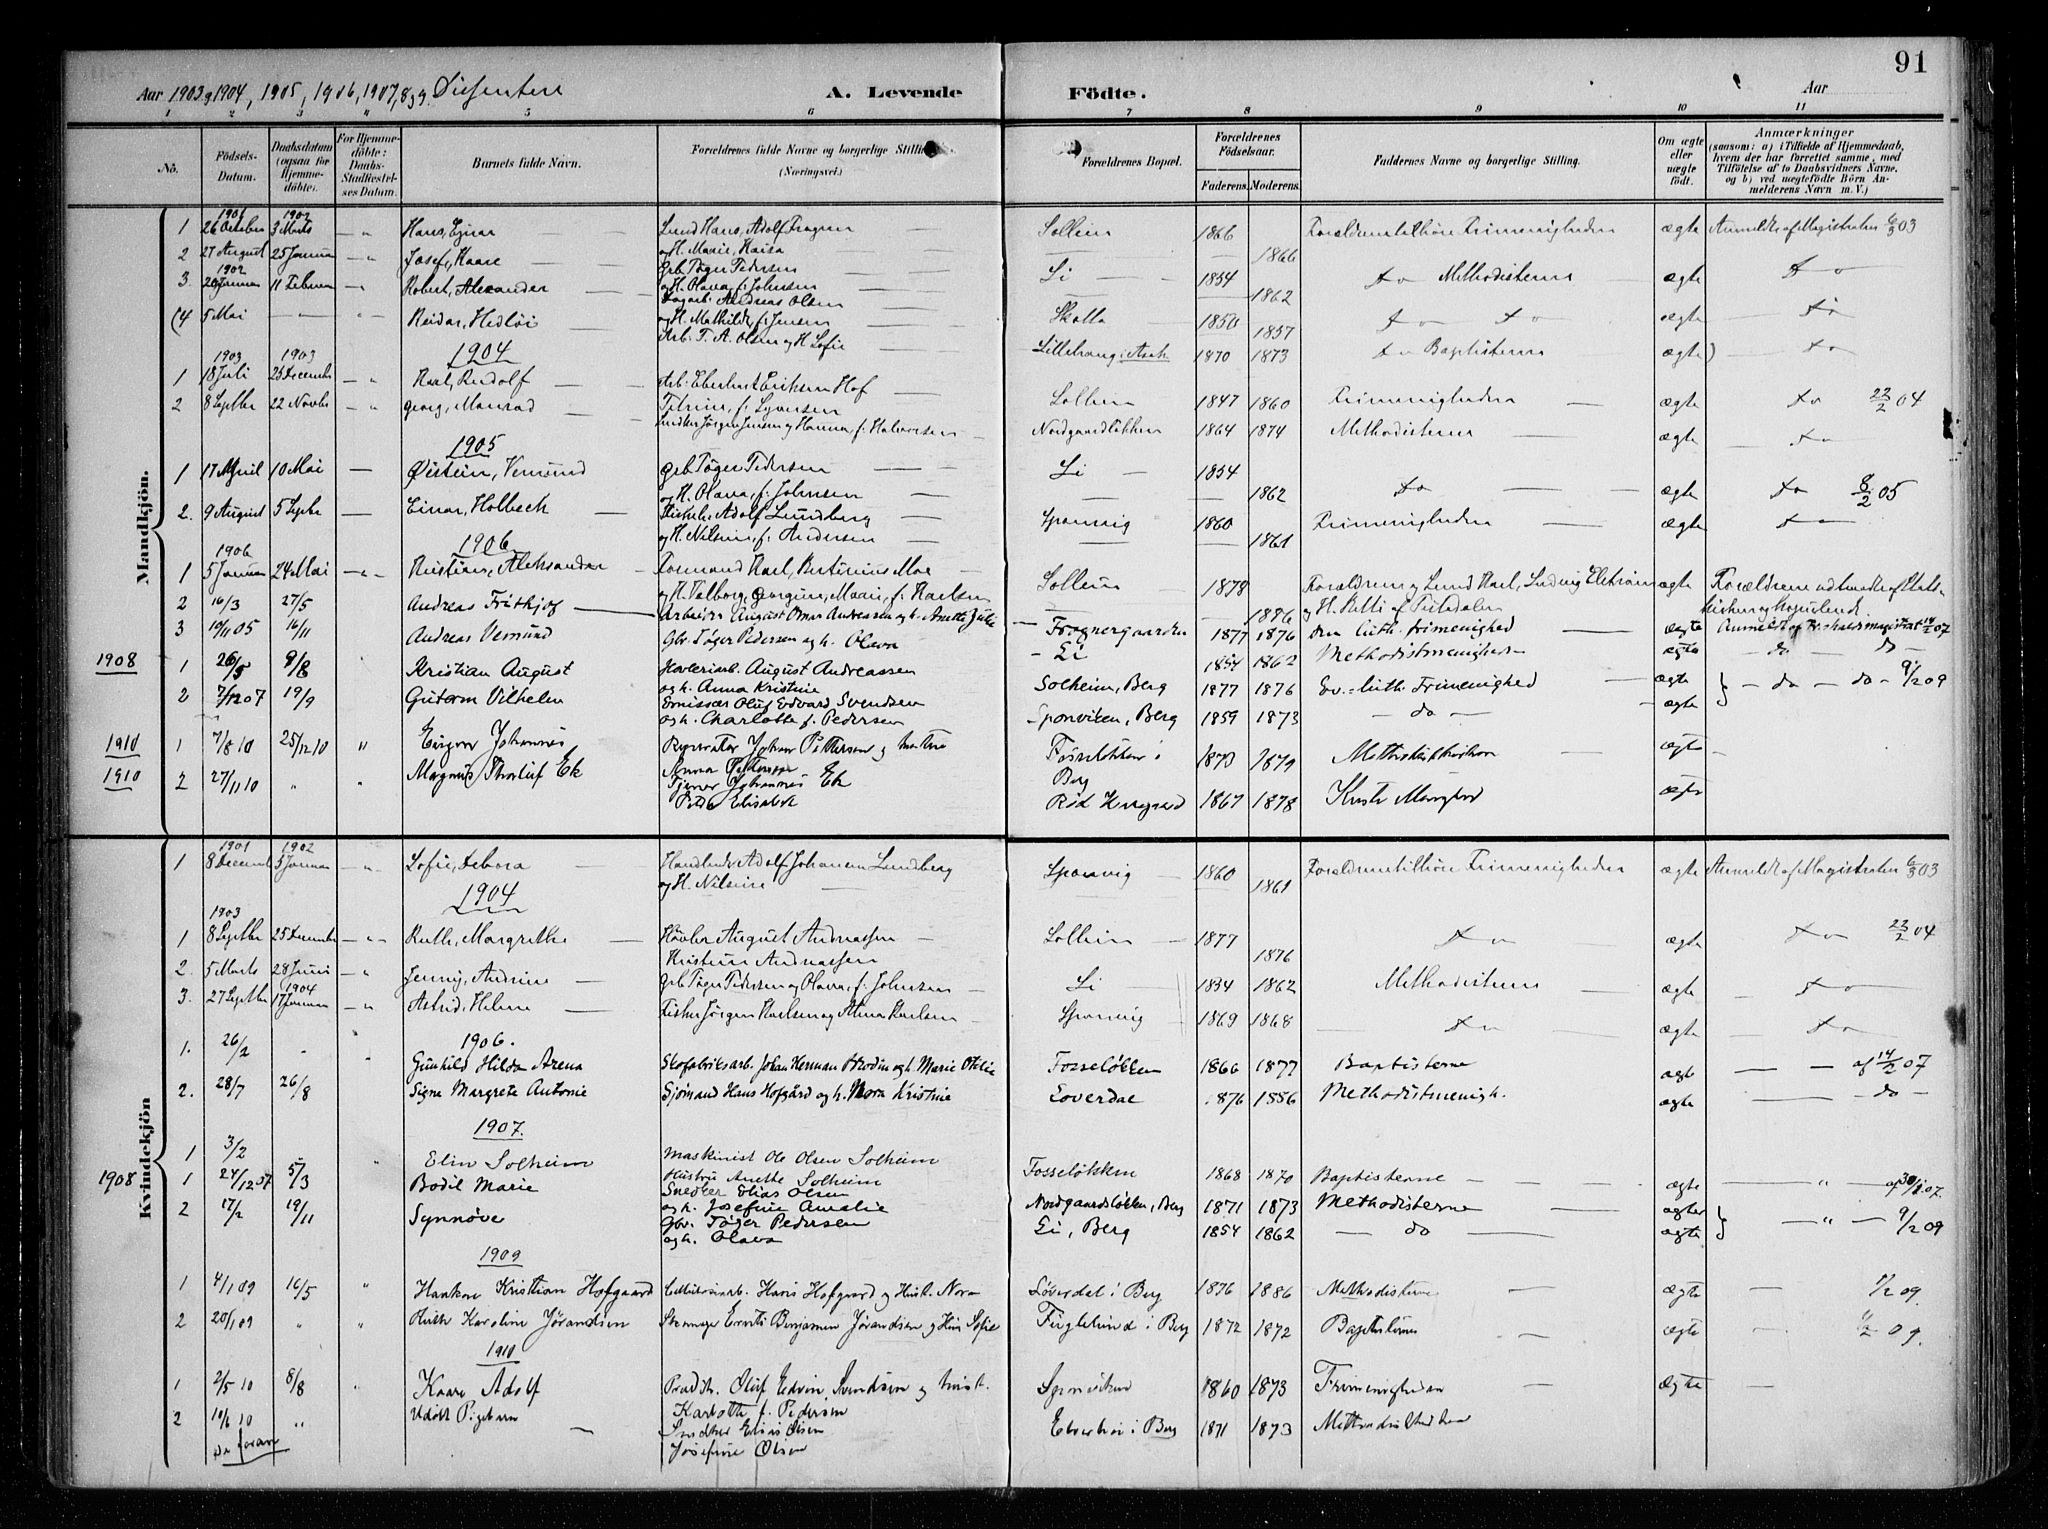 91
Aar 1903 og 1904, 1905, 1906, 1907, 8 og 9. Dissentere A. Levende Fødte. Aar
1 2 3 4 5 6 7 8 9 10 11
No. Födsels-Datum. Daabsdatum (ogsaa for Hjemmedöbte). For Hjemmedöbte: Daabs-Stadfæstelses Datum. Barnets fulde Navn. Forældrenes fulde Navne og borgerlige Stilling (Næringsvei). Forældrenes Bopæl. Forældrenes Födselsaar. Faderens. Moderens. Faddernes Navne og borgerlige Stilling. Om ægte eller uægte födt. Anmærkninger (saasom: a) i Tilfælde af Hjemmedaab, hvem der har forrettet samme, med Tilföielse af to Daabsvidners Navne. og b) ved uægtefödte Börn Anmelderens Navn m. V.)
Mandkjön.
1901 1902
1 26 October 3 Marts Hans, Ejnar Lund Hans, Adolf Sollem 1866 Forældrene tilhøre Frimenigheden ægte Anmeldt af Magistraten 6/3 03
og H. Marie, 1866
2 27 August 25 Januar Josef, Kaare Grb Tøger Pedersen Li 1854 do Methodisterne ægte do
og H. Olava, f. Johnsen 1862
1902
3 20 Januar 11 Februar Robert, Alexander Dagarb. Andreas Olsen 1850 do do ægte do
og H. Mathilde f. Jensen 1857
(4 5 Mai Reidar, Arb. F. A. Olsen og H Sofie 1870 1873 do Baptisterne ægte) do
1904
1903 1903
1 18 Juli 25 December Karl, Rudolf Arb. Eberhardt Eriksen Hof Sollem 1847 1860 Frimenigheden ægte do 22/2 04
2 8 Septbr 22 Novbr Georg, Monrad Snedker Jørgen Jensen og Hanna, f. Halvorsen Nordgaardsløkken 1864 1874 Methodisterne ægte do
1905
1 17 April 10 Mai Øistein, Vemund Grb Tøger Pedersen Li 1854
og H. Olava, f. Johnsen 1862 do ægte do 8/2 05
2. 9 August 5 Septbr Einar, Holbech Adolf Lundberg Sponvig 1860 Frimenigheden ægte do
og H. Nilsine, f. Andersen 1861
1906
1906
1 5 Januar 24 Mai Kristian, Aleksander Formand Karl, Bertinius Moe Sollem 1878 Forældrene og Lund Karl, Ludvig ægte Forældrene udtraadt af Stats-
og H. Valborg, Georgine, Marie, f. Karlsen 1886 og H. af Tistedalen kirken og
2 16/3 27/5 Andreas Fritkjof Arbeider August Omar Andreassen og h. Anette Julie Fragnergaarden 1877 1876 den luth. frimenighed ægte Anmeldt af Fr.halds magistrat 14/2 07
3 19/11 05 16/11 Andreas Vemund Gbr. Tøger Pedersen og h. Olava Li 1854 1862 Methodistmenighed ægte do do
1908 1 26/5 9/8 Kristian August Høvleriarb. August Andreassen Solheim, Berg 1877 1876 Ev.-luth. Frimenighed ægte do do 9/2 09
og h. Anna Kristine
2 7/12 07 19/9 Gutorm Vilhelm Emissær Oluf Edvard Svendsen Sponviken, Berg 1859 1873 do ægte
og h. Charlotte f. Pedersen
1910 1 7/8 10 25/12 10 " Johannes Johan Pettersen og hustru 1873 1879 ægte
Anna Pettersen Berg
1910 2 27/11 10 " " Magnus Thorleif Ek Tjener Johannes Ek Rød 1867 1878 ægte
Elisabeth
Kvindekjön
1901 1902
1 8 Decembr 5 Januar Sofie, Debora Handlende Adolf Johannes Lundberg Sponvig 1860 Forældrene tilhøre Frimenigheden ægte Anmeldt af Magistraten 6/3 03
og H. Nilsine 1861
1904
1903
1 8 Septbr 25 December Ruth, Margrethe Høvler August Andreassen Sollem 1877 do ægte do 22/2 04
Kristine Andreassen 1876
2. 5 Marts 28 Juni Jenny, Andrine Grb Tøger Pedersen og Olava, f. Johnsen Li 1854 1862 Methodisterne ægte do
1904
3. 27 Septbr 17 Januar Astrid, Helene Fisker Jørgen Karlsen og Alma Karlsen Sponvig 1869 1868 do ægte do
1906.
1. 26/2 " Gunhild Hilda Arena Skofabriksarb. Johan Herman Brodin og h. Marie Otilie Fosseløkken 1866 1877 Baptisterne ægte af 14/2 07
2. 28/7 26/8 Signe Margrete Antonie Sjømand Hans Hofgård og h. Nora Kristine Loverdal 1876 1886 Methodistmenigh. ægte do
1907.
1 3/2 " Elin Solheim Maskinist Ole Olsen Solheim Fosseløkken 1868 1870 Baptisterne ægte " af 30/1 07.
Hustru Anette Solheim
1908 1 24/12 07 5/3 Bodil Marie Snedker Elias Olsen Nordgaardsløkken, Berg 1871 1873 Methodisterne ægte " 9/2 09
og h. Josefine Amalie
2 17/2 19/11 Synnöve Gbr. Töger Pedersen Li, Berg 1854 1862 do ægte
og h. Olava
1909
1 4/1 09 16/5 " Haakon Kristian Hofgaard Hans Hofgaard og Hust. Nora Löverdal i Berg 1876 1886 Methodisterne ægte 1/2 09.
2 20/1 09 " " Ruth Karoline Jörandsen Skomager Benjamin Jörandsen og Hus Sofie i Berg 1872 1872 Baptisternes ægte 1/2 09.
1910
1 2/5 10 8/8 " Kaare Adolf Prædik. Oluf Edvin Svendsen og hust. Sponviken 1860 1873 Frimenigheden ægte
Karlotte f. Pedersen
2 10/6 10 " Udöbt Pigebarn Snedker Elias Olsen i Berg 1871 1873
Se foran Josefine Olsen